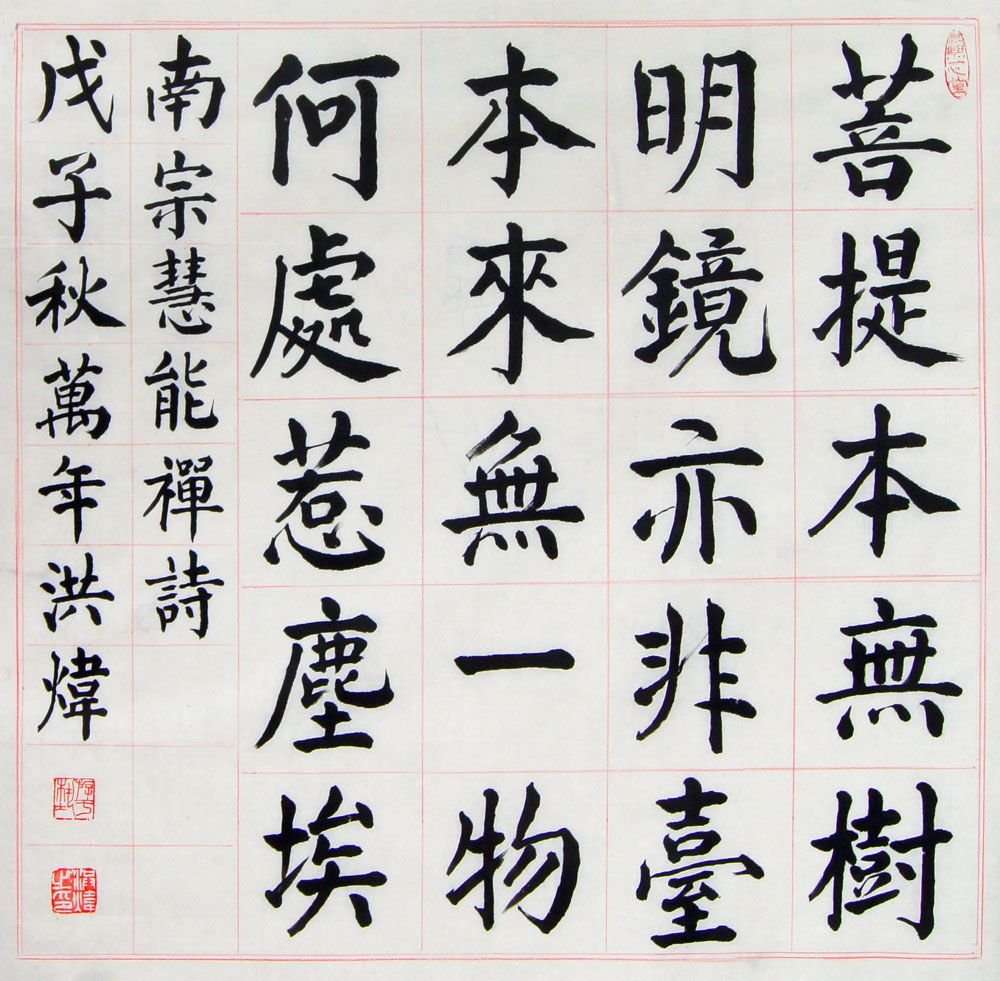 菩提本無樹
明鏡亦非臺
本來無一物
何處惹塵埃
南宗慧能禪詩
戊子秋萬年洪煒